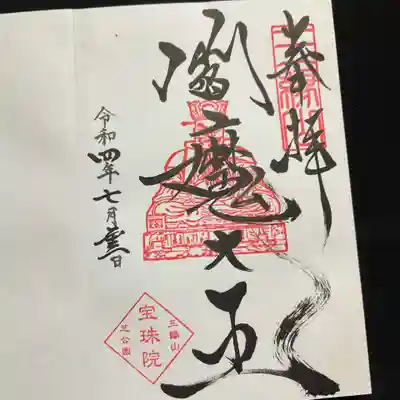 奉拝
閻魔大王
令和四年七月壹日
三縁山
宝珠院
芝公園